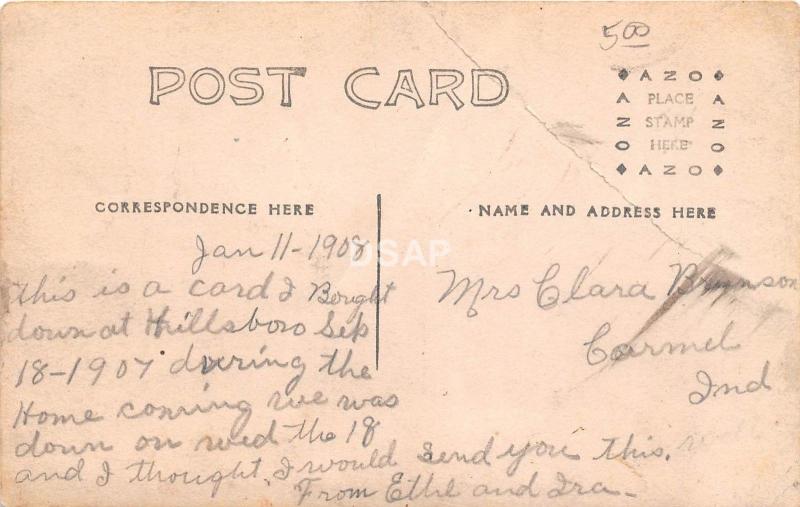 5.00
POST CARD
AZO
PLACE
STAMP
HERE
AZO
AZO
AZO
CORRESPONDENCE HERE
NAME AND ADDRESS HERE
Jan 11-1908
DSAP
this is a card I Bought
down at Hillsboro Sep
18-1907 during the
Home coming we was
down on wed the 18
and I thought I would send you this.
From Ethel and Ira-
Mrs Clara
Carmel
Ind